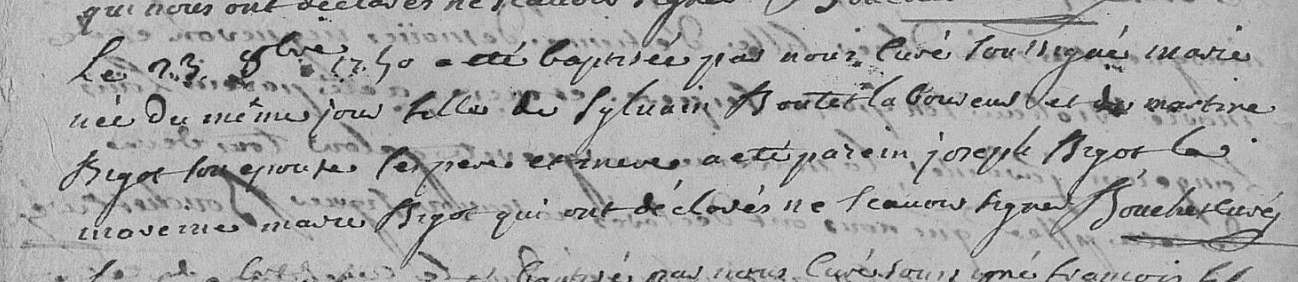 qui nous ont déclarés ne scauoir signer
Le 23 8bre 1750 a eté baptisée par nous Curé soussigné marie
née du même jour fille de Sylvain Boutet laboureur et de martine
Bigot son epouse ses pere et mere a eté parein joseph Bigot la
mareine marie Bigot qui ont déclarés ne scauoir signer Boucher curé
baptisé par nous Curé soussigné francois